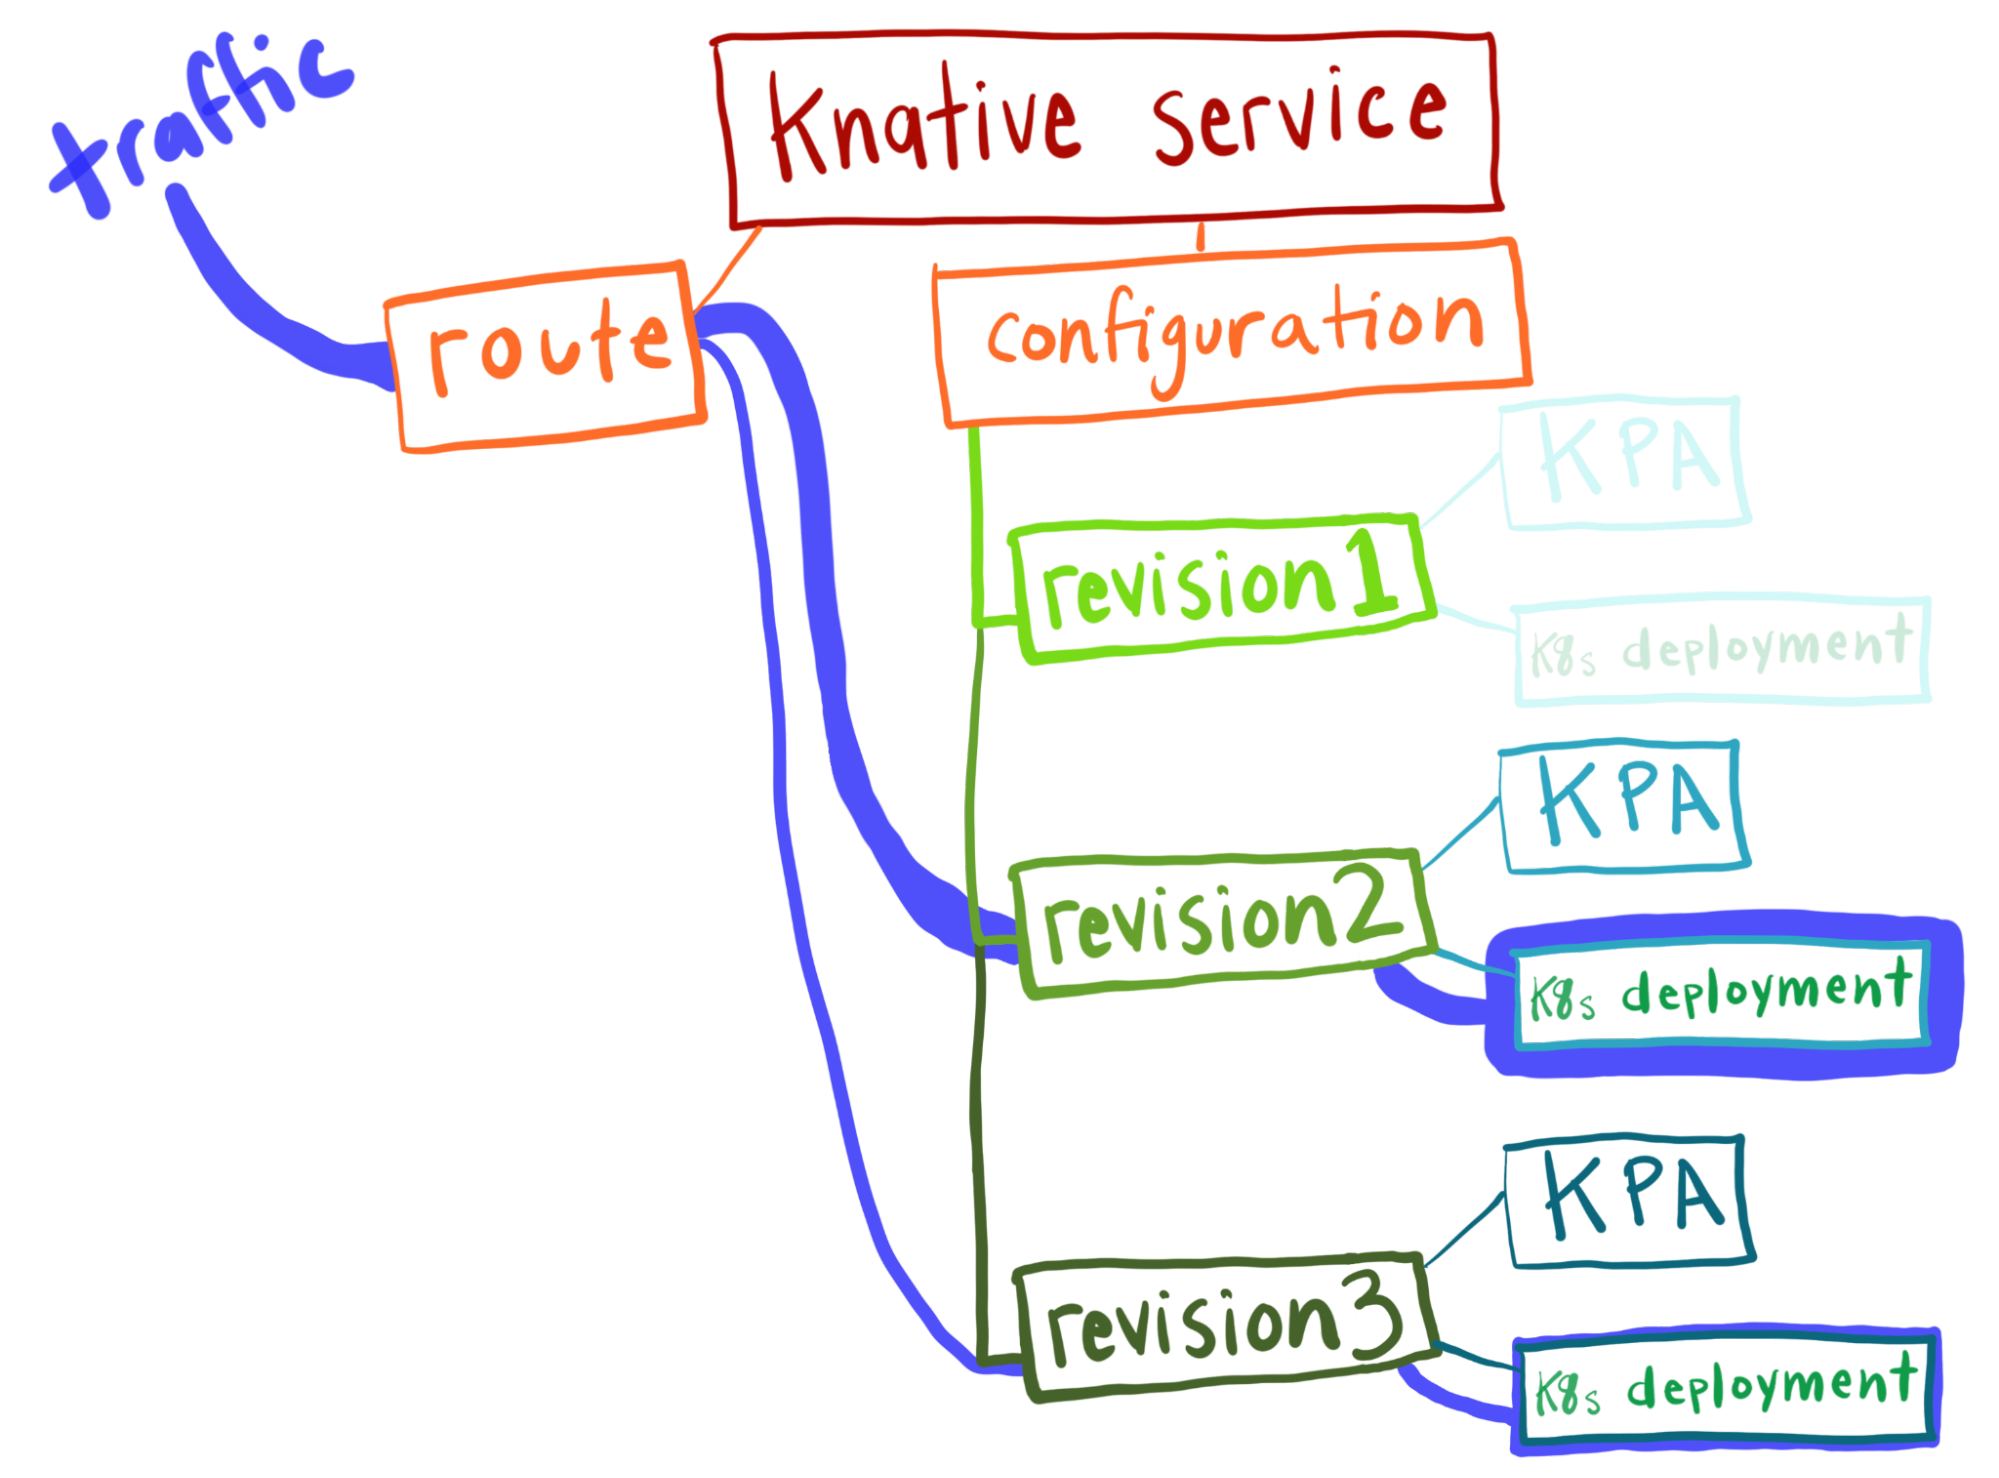 traffic
Knative service
route
configuration
KPA
revision1
K8s deployment
KPA
revision2
K8s deployment
KPA
revision3
K8s deployment